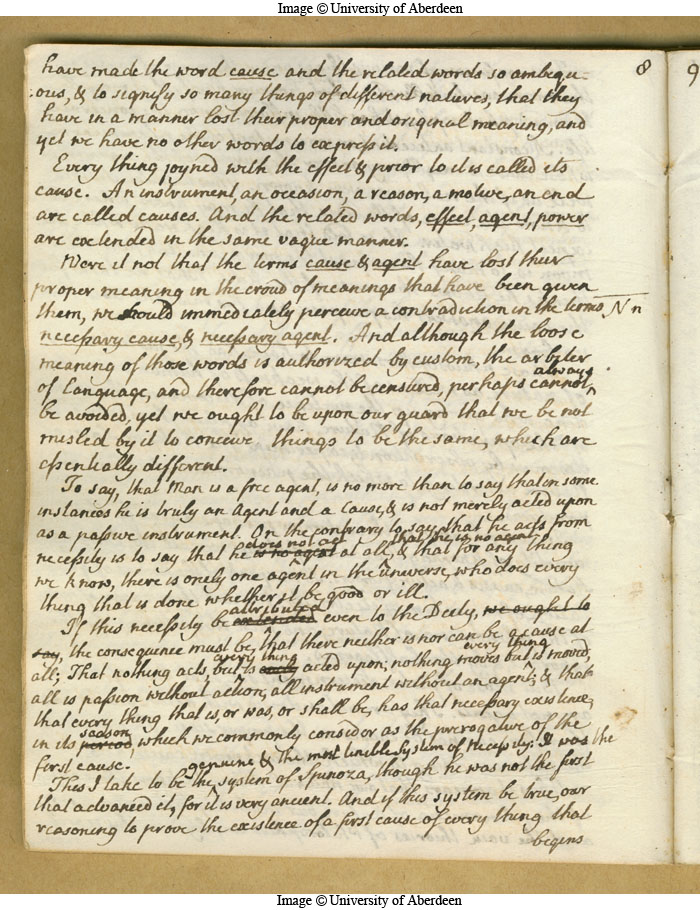 Image © University of Aberdeen
8
9
have made the word cause and the related words so ambigu-
:ous, & to signify so many things of different natures, that they
have in a manner lost their proper and original meaning, and
yet we have no other words to express it.
Every thing joyned with the effect & prior to it is called its
cause. An instrument, an occasion, a reason, a motive, an end
are called causes. And the related words, effect, agent, power
are extended in the same vague manner.
Were it not that the terms cause & agent have lost their
proper meaning in the croud of meanings that have been given
them, we should immediately perceive a contradiction in the terms N n
necessary cause, & necessary agent. And although the loose
meaning of those words is authorized by custom, the arbiter
of Language, and therefore cannot be censured, perhaps cannot always
be avoided, yet we ought to be upon our guard that we be not
misled by it to conceive things to be the same, which are
essentially different.
To say, that Man is a free agent, is no more than to say that in some
instances he is truly an Agent and a Cause, & is not merely acted upon
as a passive instrument. On the contrary to say that he acts from
necessity is to say that he is no agent does not act at all, that he is no agent & that for any thing
we know, there is onely one agent in the universe, who does every
thing that is done whether it be good or ill.
If this necessity be extended attributed even to the Deity, we ought to
say, the consequence must be, that there neither is nor can be a cause at
all; That nothing acts, but is every thing acted upon; nothing moves but every thing is moved;
all is passion without action, all instrument without an agent; & that
that every thing that is, or was, or shall be, has that necessary existence,
in its period season, which we commonly consider as the prerogative of the
first cause.
This I take to be the genuine & the most tenible System of Necessity. It was the
system of Spinoza, though he was not the first
that advanced it, for it is very ancient. And if this system be true, our
reasoning to prove the existence of a first cause of every thing that
begins
Image © University of Aberdeen